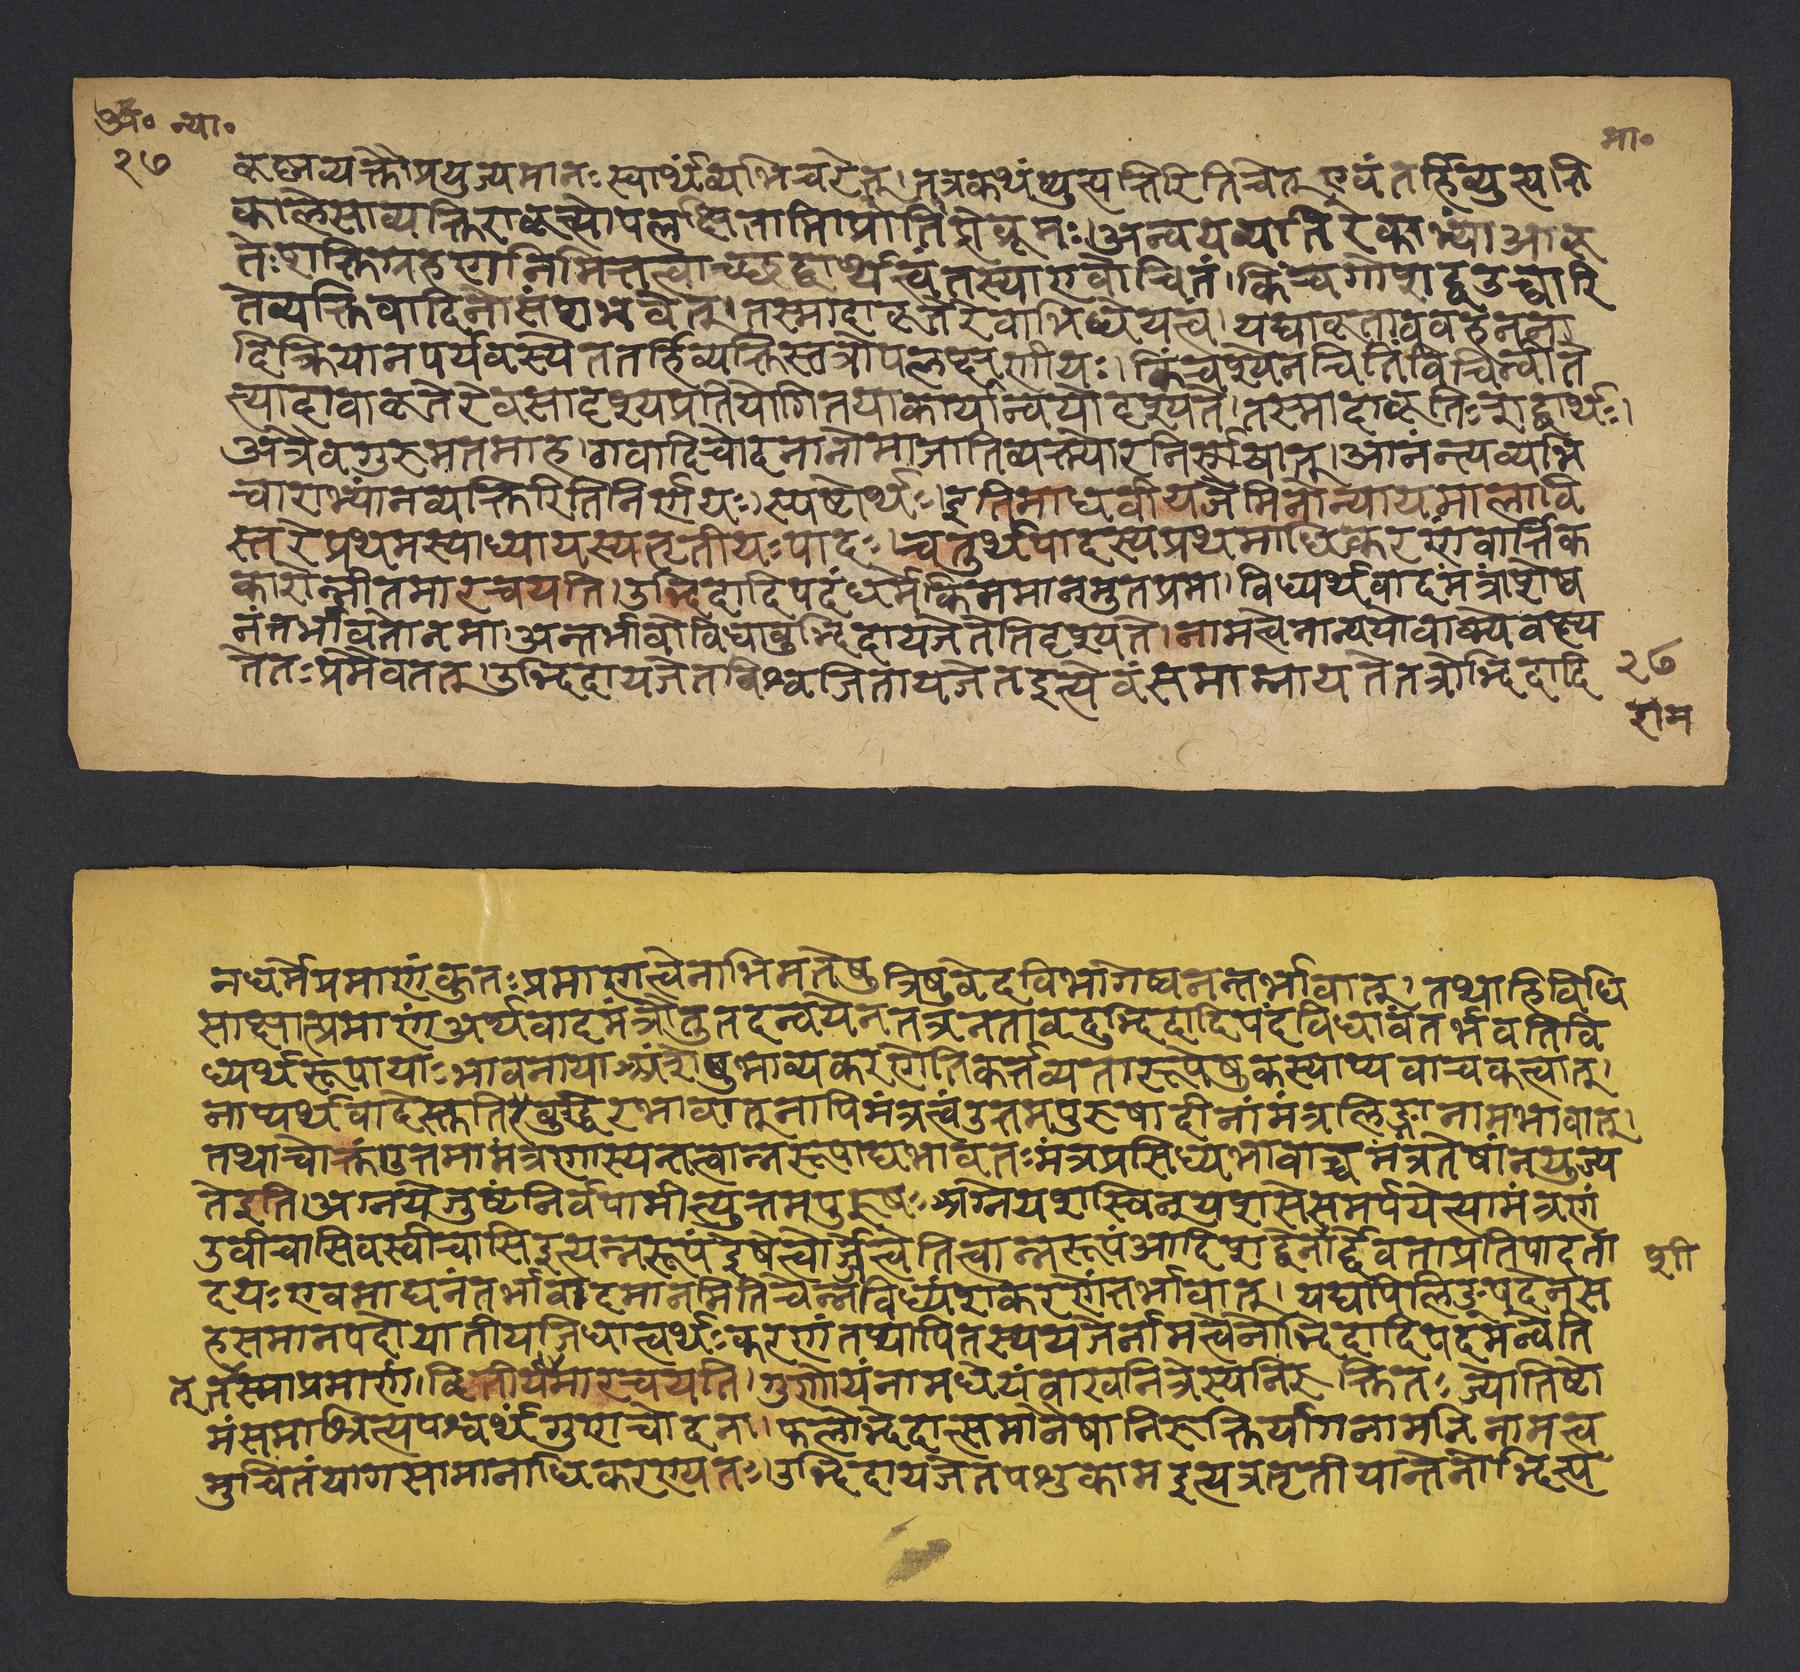 अ॰ न्या॰
मा॰
२७
कृष्णव्यक्तौ प्रयुज्यमानः स्वार्थं व्यभिचरेत् । तत्र कथं व्युत्पत्तिरिति चेत् एवं तर्हि व्युत्पत्ति
काले सा व्यक्तिराकृत्योपलक्षिता
अन्वयव्यतिरेकाभ्यां आकृ
तेः शक्तिग्रहणनिमित्तत्वाच्छब्दार्थत्वं तस्या एवोचितं । किं च गोशब्द उच्चारि
ते व्यक्तिवादिनो संशयो भवेत् । तस्मादाकृतेरेवाभिधेयत्वं । यद्याकृताववहनना
दिक्रिया न पर्यवस्येत तर्हि व्यक्तिस्तत्रोपलक्षणीया । किं च श्येनचितिं चिन्वीते
त्यादावाकृतेरेव सादृश्यप्रतियोगितया कार्यान्वयो दृश्यते । तस्मादाकृतिः शब्दार्थः ।
अत्रैव गुरुमतमाह । गवादिचोदना नो मा जातिव्यक्त्योरनिर्णयात् । आनंत्यव्यभि
चाराभ्यां न व्यक्तिरिति निर्णयः । स्पष्टोर्थः । इति माधवीये जैमिनीन्यायमालावि
स्तरे प्रथमस्याध्यायस्य तृतीयः पादः । चतुर्थपादस्य प्रथमाधिकरणं वार्त्तिक
कारोन्नीतमारचयति । उद्भिदादिपदं धर्मे किममानमुत प्रमा । विध्यर्थवादमंत्रांशेष्व
नंतर्भावतो न मा । अन्तर्भावो विधावुद्भिदा यजेतेति दृश्यते । नामत्वेनान्वयो वाक्ये वक्ष्य
तेतः प्रमैव तत् । उद्भिदा यजेत विश्वजिता यजेत इत्येवं समाम्नायते तत्रोद्भिदादि
२७
राम
न धर्मे प्रमाणं कुतः प्रमाणत्वेनाभिमतेषु त्रिषु वेदविभागेष्वनन्तर्भावात् । तथा हि विधि
साक्षात्प्रमाणं अर्थवादमंत्रौ तु तदन्वयेन तत्र न तावदुद्भिदादिपदं विधावंतर्भवति वि
ध्यर्थरूपायाः भावनाया अंशेषु भाव्यकरणेतिकर्तव्यतारूपेषु कस्याप्यवाचकत्वात् ।
नाप्यर्थवादे स्तुतिबुद्धेरभावात् नापि मंत्रत्वं उत्तमपुरुषादीनां मंत्रलिङ्गानामभावात् ।
तथा चोक्तं उत्तमामंत्रणास्यन्तत्वान्तरूपाद्यभावतः मंत्रप्रसिध्यभावाच्च मंत्रतैषां न युज्य
ते इति । अग्नये जुष्टं निर्वपामीत्युत्तमपुरुषः अग्ने यशस्विन् यशसे समर्पयेत्यामंत्रणं
उर्वी चासि वस्वी चासि इत्यन्तरूपं इषेत्वोर्जेत्वेति त्वान्तरूपं आदिशब्देनोर्द्देवताप्रतिपादना
शी
दयः एवमाद्यनंतर्भावादमानमिति चेन्न विध्यंशकरणेंतर्भावात् । यद्यपि लिङ्पदेन स
ह समानपदोपात्तो यजिधात्वर्थः करणं तथापि तस्य यजेर्नामत्वेनोद्भिदादिपदमन्वेति
तत् तस्मात्प्रमाणं । द्वितीयमारचयति । गुणोयं नामधेयं वा खनित्रेस्य निरुक्तितः ज्योतिष्टो
मं समाश्रित्य पश्वर्थं गुणचोदना । फलोद्भेदात्समानैषा निरुक्तिर्यागनामनि नामत्व
मुचितं यागसामानाधिकरण्यतः । उद्भिदा यजेत पशुकाम इत्यत्र तृतीयान्तेनोद्भित्प